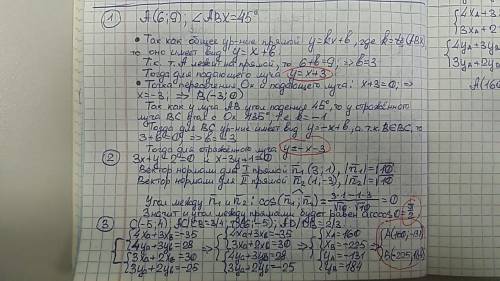 ① A(6;9); ∠ABX=45°
• Так как общее ур-ние прямой y=kx+b, где k=tg(ABX),
то оно имеет вид y=x+b.
Т.к. т. A лежит на прямой, то 6+b=9; ⇒ b=3
Тогда для падающего луча y=x+3
• Точка пересечения Ox и падающего луча: x+3=0; ⇒
x=-3; ⇒ B(-3;0)
Так как у луча AB угол падения 45°, то у отражённого
луча BC угол с Ox 135°, k=-1
Тогда для BC ур-ние имеет вид y=-x+b, а т.к. B∈BC, то
3+b=0 ⇒ b=-3
Тогда для отражённого луча y=-x-3
② 3x+y-2=0 и x-3y+1=0
Вектор нормали для I прямой n₁(3;1), |n₁|=√10
Вектор нормали для II прямой n₂(1;-3), |n₂|=√10
Угол между n₁ и n₂: cos(n₁;n₂)=(3·1-1·3)/(√10·√10)=0
Значит и угол между прямыми будет равен arccos0=π/2
③ C(-5;4), AC/CB=3/4; D(6;-5); AD/DB=2/3
{4xA+3xB=-35 {4xA+3xB=-35 {xA=160 A(160;-131)
{4yA+3yB=28 {3xA+2xB=30 {xB=-225 B(-225;184)
{3xA+2xB=30 {4yA+3yB=28 {yA=-131
{3yA+2yB=-25 {3yA+2yB=-25 {yB=184
{4xA+3
{3xA+2
{4yA+3y
{3yA+2y
A(160